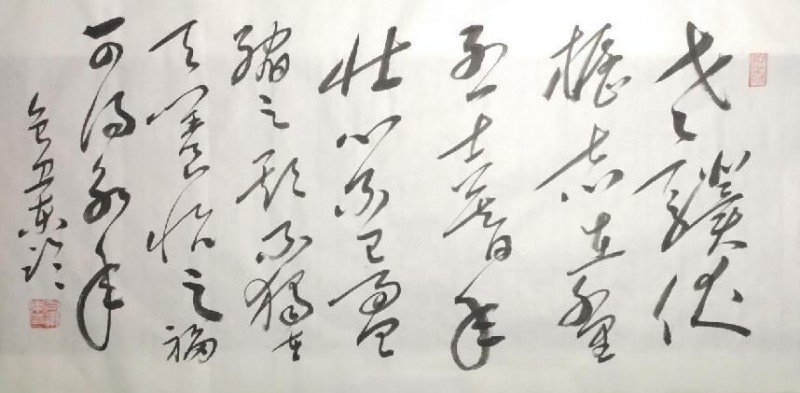 老驥伏
櫪志在千里
烈士暮年
壮心不已盈
縮之期不独在
天養怡之福
可得永年
丑